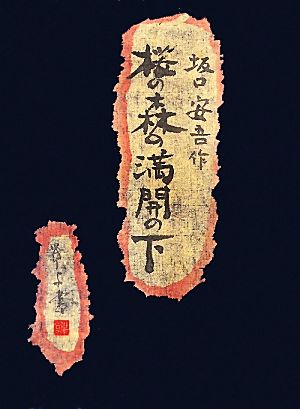 坂口安吾作
桜の森の満開の下